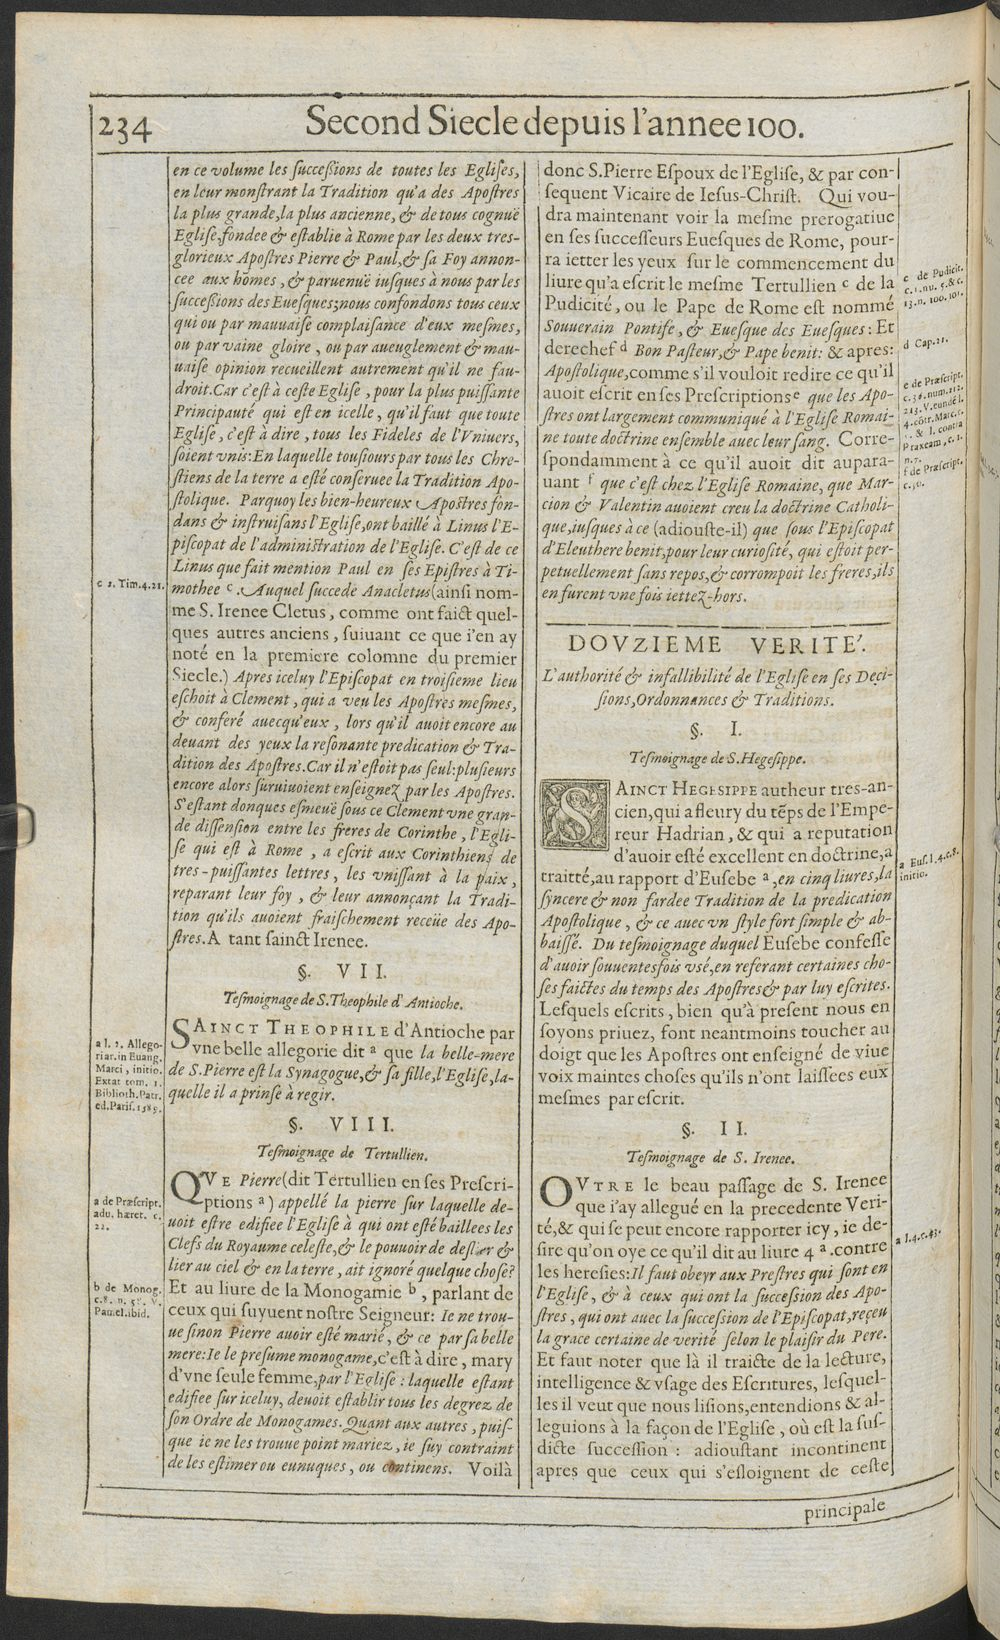 234
Second Siecle depuis l'annee 100.
en ce volume les succeſſions de toutes les Egliſes,
en leur monſtrant la Tradition qu'a des Apoſtres
la plus grande, la plus ancienne, & de tous cognuë
Egliſe, fondee & eſtablie à Rome par les deux tres-
glorieux Apoſtres Pierre & Paul, & ſa Foy annon-
cee aux hōmes, & paruenuë iuſques à nous par les
ſucceſſions des Eueſques; nous confondons tous ceux
qui ou par mauuaiſe complaiſance d'eux meſmes,
ou par vaine gloire, ou par aueuglement & mau-
uaiſe opinion recueillent autrement qu'il ne fau-
droit. Car c'eſt à ceſte Egliſe, pour la plus puiſſante
Principauté qui eſt en icelle, qu'il faut que toute
Egliſe, c'eſt à dire, tous les Fideles de l'Vniuers,
ſoient vnis: En laquelle touſiours par tous les Chre-
ſtiens de la terre a eſté conſeruee la Tradition Apo-
ſtolique. Parquoy les bien-heureux Apoſtres fon-
dans & inſtruiſans l'Egliſe, ont baillé à Linus l'E-
piſcopat de l'adminiſtration de l'Egliſe. C'eſt de ce
Linus que fait mention Paul en ſes Epiſtres à Ti-
mothee c. Auquel ſuccede Anacletus (ainſi nom-
me S. Irenee Cletus, comme ont faict quel-
ques autres anciens, ſuiuant ce que i'en ay
noté en la premiere colomne du premier
Siecle.) Apres iceluy l'Epiſcopat en troiſieme lieu
eſchoit à Clement, qui a veu les Apoſtres meſmes,
& conferé auecqu'eux, lors qu'il auoit encore au
deuant des yeux la reſonante predication & Tra-
dition des Apoſtres. Car il n'eſtoit pas ſeul: pluſieurs
encore alors ſuruiuoient enſeignez par les Apoſtres.
S'eſtant donques eſmeuë ſous ce Clement vne gran-
de diſſenſion entre les freres de Corinthe, l'Egli-
ſe qui eſt à Rome, a eſcrit aux Corinthiens de
tres-puiſſantes lettres, les vniſſant à la paix,
reparant leur foy, & leur annonçant la Tradi-
tion qu'ils auoient fraiſchement receüe des Apo-
ſtres. A tant ſainct Irenee.
§. VII.
Teſmoignage de S. Theophile d'Antioche.
SAINCT THEOPHILE d'Antioche par
vne belle allegorie dit a que la belle-mere
de S. Pierre eſt la Synagogue, & ſa fille, l'Egliſe, la-
quelle il a prinſe à regir.
§. VIII.
Teſmoignage de Tertullien.
QVE Pierre (dit Tertullien en ſes Preſcri-
ptions a) appellé la pierre ſur laquelle de-
uoit eſtre edifiee l'Egliſe à qui ont eſté baillees les
Clefs du Royaume celeſte, & le pouuoir de deſlier &
lier au ciel & en la terre, ait ignoré quelque choſe?
Et au liure de la Monogamie b, parlant de
ceux qui ſuyuent noſtre Seigneur: Ie ne trou-
ue ſinon Pierre auoir eſté marié, & ce par ſa belle
mere: Ie le preſume monogame, c'eſt à dire, mary
d'vne ſeule femme, par l'Egliſe: laquelle eſtant
edifiee ſur iceluy, deuoit eſtablir tous les degrez de
ſon Ordre de Monogames. Quant aux autres, puiſ-
que ie ne les trouue point mariez, ie ſuy contraint
de les eſtimer ou eunuques, ou continens. Voilà
c 2. Tim. 4. 21.
a l. 2. Allego-
riar. in Euang.
Marci, initio.
Extat tom. 1.
Biblioth. Patr.
ed. Pariſ. 1589.
a de Præſcript.
adu. hæret. c.
22.
b de Monog.
c. 8. n. 58. V.
Pamel. ibid.
donc S. Pierre Eſpoux de l'Egliſe, & par con-
ſequent Vicaire de Ieſus-Chriſt. Qui vou-
dra maintenant voir la meſme prerogatiue
en ſes ſucceſſeurs Eueſques de Rome, pour-
ra ietter les yeux ſur le commencement du
liure qu'a eſcrit le meſme Tertullien c de la
Pudicité, ou le Pape de Rome eſt nommé
Souuerain Pontife, & Eueſque des Eueſques: Et
derechef d Bon Paſteur, & Pape benit: & apres:
Apoſtolique, comme s'il vouloit redire ce qu'il
auoit eſcrit en ſes Preſcriptions e que les Apo-
ſtres ont largement communiqué à l'Egliſe Romai-
ne toute doctrine enſemble auec leur ſang. Corre-
ſpondamment à ce qu'il auoit dit aupara-
uant f que c'eſt chez l'Egliſe Romaine, que Mar-
cion & Valentin auoient creu la doctrine Catholi-
que, iuſques à ce (adiouſte-il) que ſous l'Epiſcopat
d'Eleuthere benit, pour leur curioſité, qui eſtoit per-
petuellement ſans repos, & corrompoit les freres, ils
en furent vne fois iettez-hors.
DOVZIEME VERITE'.
L'authorité & infallibilité de l'Egliſe en ſes Deci-
ſions, Ordonnances & Traditions.
§. I.
Teſmoignage de S. Hegeſippe.
SAINCT HEGESIPPE autheur tres-an-
cien, qui a fleury du tēps de l'Empe-
reur Hadrian, & qui a reputation
d'auoir eſté excellent en doctrine, a
traitté, au rapport d'Euſebe a, en cinq liures, la
ſyncere & non fardee Tradition de la predication
Apoſtolique, & ce auec vn ſtyle fort ſimple & ab-
baiſſé. Du teſmoignage duquel Euſebe confeſſe
d'auoir ſouuentesfois vsé, en referant certaines cho-
ſes faictes du temps des Apoſtres & par luy eſcrites.
Leſquels eſcrits, bien qu'à preſent nous en
ſoyons priuez, font neantmoins toucher au
doigt que les Apoſtres ont enſeigné de viue
voix maintes choſes qu'ils n'ont laiſſees eux
meſmes par eſcrit.
§. II.
Teſmoignage de S. Irenee.
OVTRE le beau paſſage de S. Irenee
que i'ay allegué en la precedente Veri-
té, & qui ſe peut encore rapporter icy, ie de-
ſire qu'on oye ce qu'il dit au liure 4 a. contre
les hereſies: Il faut obeyr aux Preſtres qui ſont en
l'Egliſe, & à ceux qui ont la ſucceſſion des Apo-
ſtres, qui ont auec la ſucceſſion de l'Epiſcopat, reçeu
la grace certaine de verité ſelon le plaiſir du Pere.
Et faut noter que là il traicte de la lecture,
intelligence & vſage des Eſcritures, leſquel-
les il veut que nous liſions, entendions & al-
leguions à la façon de l'Egliſe, où eſt la ſuſ-
dicte ſucceſſion: adiouſtant incontinent
apres que ceux qui s'eſloignent de ceſte
c de Pudicit.
c. 1. nu. 5. & c.
13. n. 100. 101.
d Cap. 21.
e de Præſcript.
c. 36. num. 212.
213. V. eundē l.
4. cōtr. Marc. c.
& l. contra
Praxeam, c. 1.
n. 7.
f de Præſcript.
c. 30.
a Euſ. l. 4. c. 8.
initio.
a l. 4. c. 43.
principale